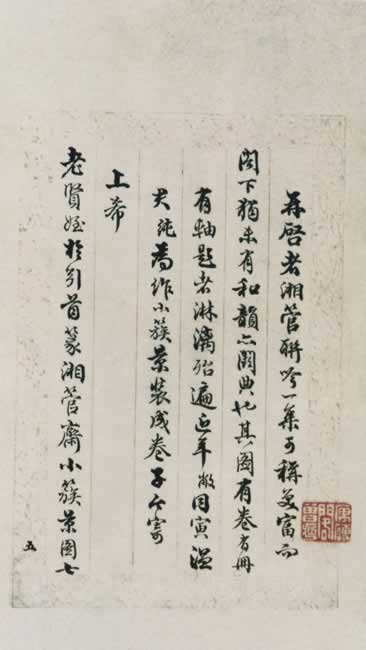 再啓者湘管聯吟一集可稱美富而
閣下獨未有和韻亦闕典也其圖有卷有冊
有軸題者淋漓殆遍近年敝同寅溫
其純為作小簇景裝成卷子今寄
上希
老賢姪於引首篆湘管齋小簇景圖七
五